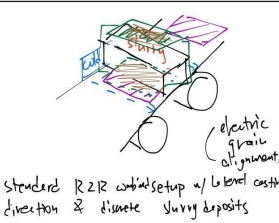 slurry
electric
grain
alignment
standard R2R combined setup w/ lateral casting
direction & discrete slurry deposits